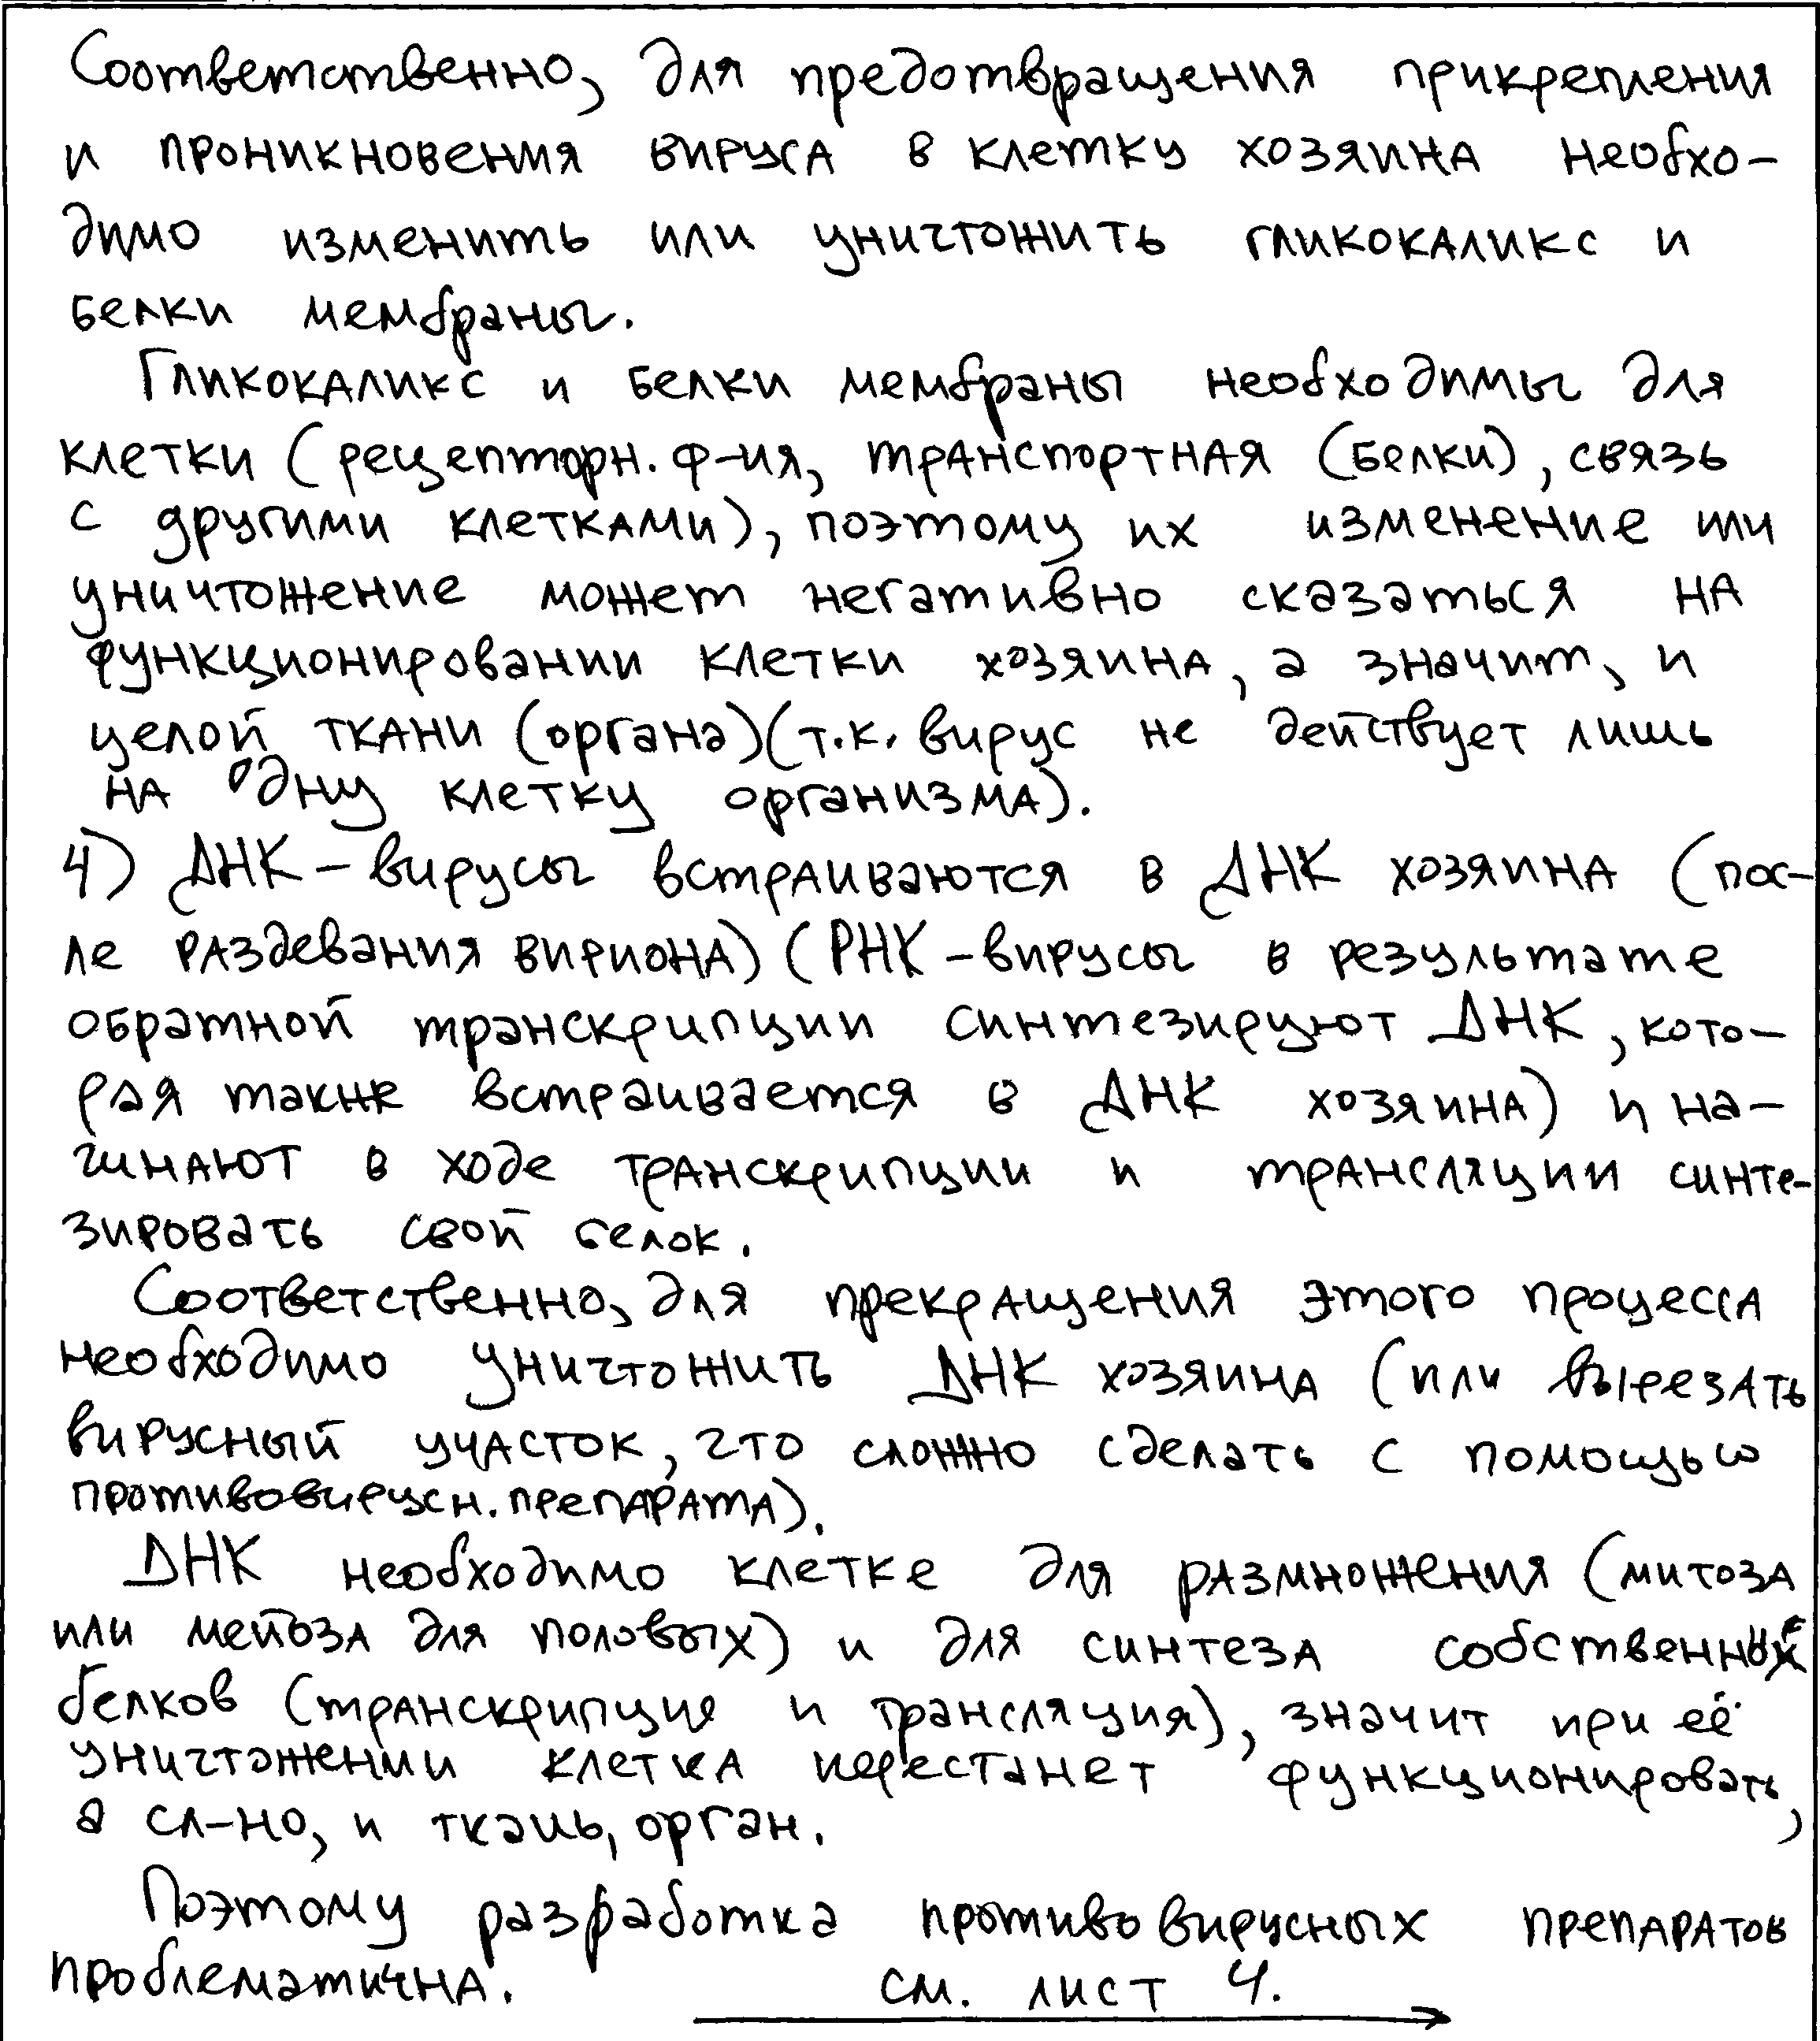 Соответственно, для предотвращения прикрепления
и проникновения вируса в клетку хозяина необхо-
димо изменить или уничтожить гликокаликс и
белки мембраны.
Гликокаликс и белки мембраны необходимы для
клетки (рецепторн. ф-ия, транспортная (белки), связь
с другими клетками), поэтому их изменение или
уничтожение может негативно сказаться на
функционировании клетки хозяина, а значит, и
целой ткани (органа) (т.к. вирус не действует лишь
на одну клетку организма).
4) ДНК-вирусы встраиваются в ДНК хозяина (пос-
ле раздевания вириона) (РНК-вирусы в результате
обратной транскрипции синтезируют ДНК, кото-
рая также встраивается в ДНК хозяина) и на-
чинают в ходе транскрипции и трансляции синте-
зировать свой белок.
Соответственно, для прекращения этого процесса
необходимо уничтожить ДНК хозяина (или вырезать
вирусный участок, что сложно сделать с помощью
противовирусн. препарата).
ДНК необходимо клетке для размножения (митоза
или мейоза для половых) и для синтеза
белков (транскрипция и трансляция), значит при её
уничтожении клетка перестанет функционировать,
а сл-но, и ткань, орган.
Поэтому разработка противовирусных препаратов
проблематична. см. лист 4.